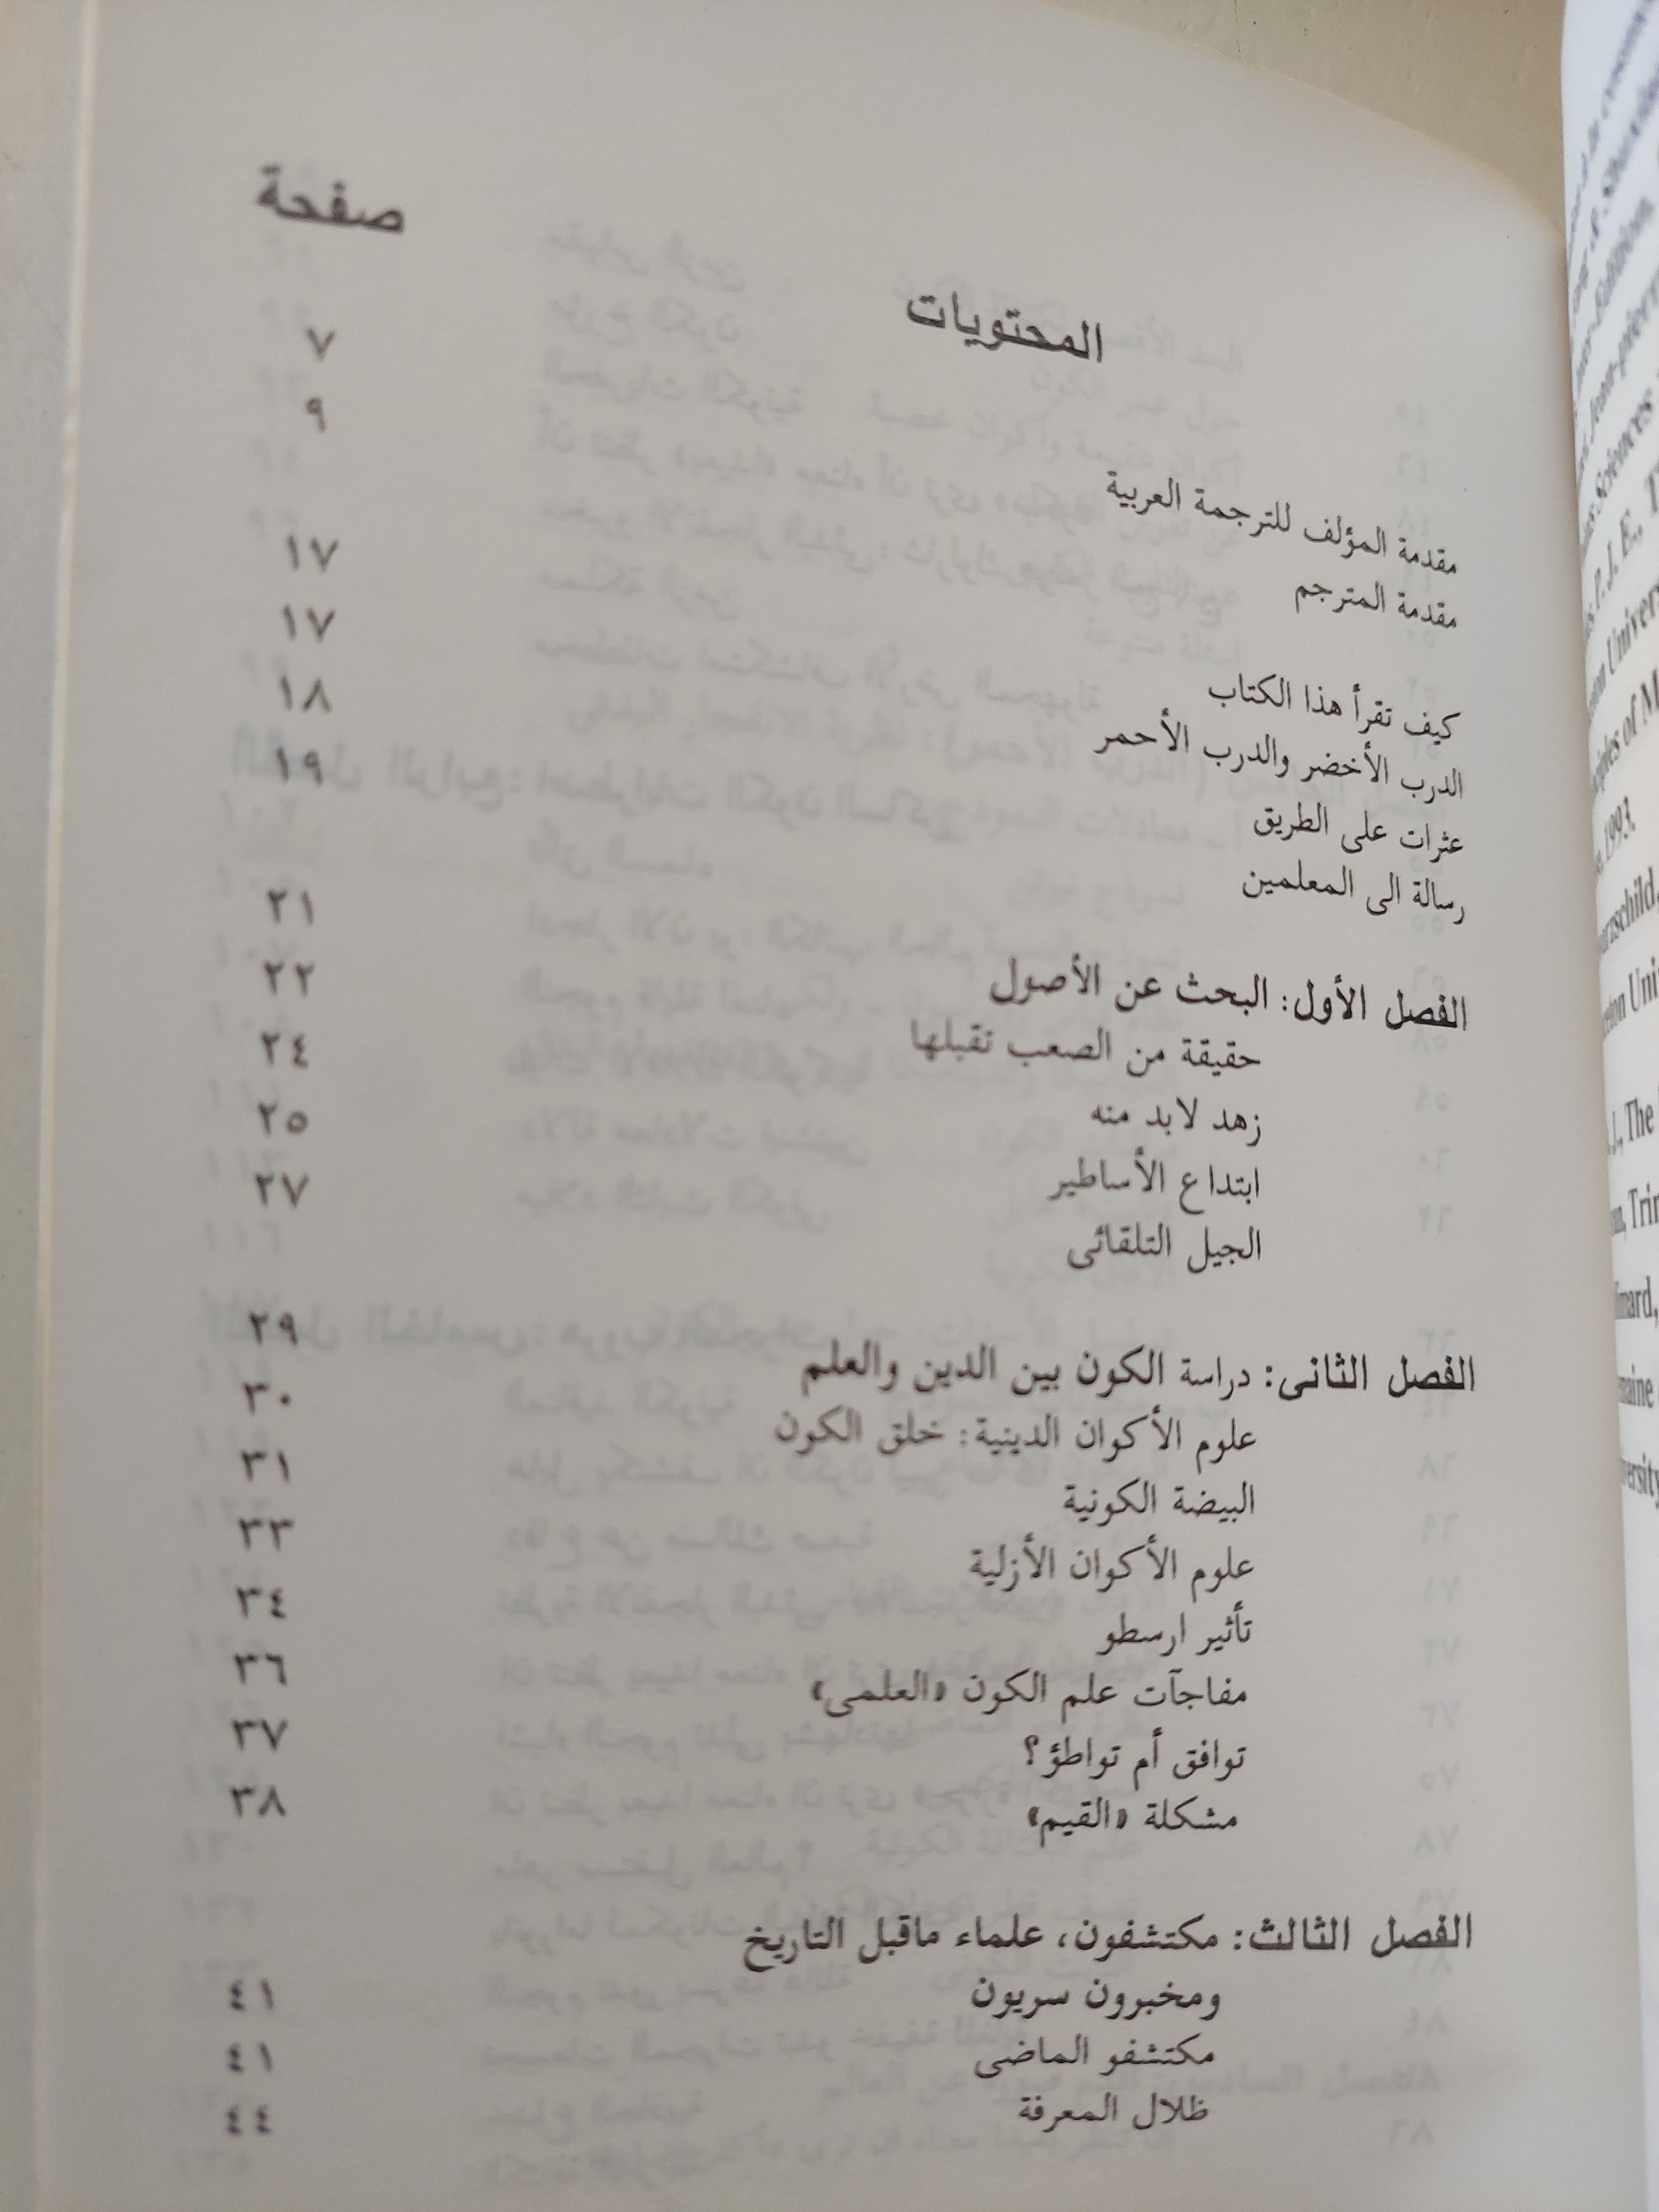 صفحة
المحتويات
مقدمة المؤلف للترجمة العربية ٧
مقدمة المترجم ٩
كيف تقرأ هذا الكتاب ١٧
الدرب الأخضر والدرب الأحمر ١٧
عثرات على الطريق ١٨
رسالة الى المعلمين ١٩
الفصل الأول: البحث عن الأصول ٢١
حقيقة من الصعب تقبلها ٢٢
زهد لابد منه ٢٤
ابتداع الأساطير ٢٥
الجيل التلقائى ٢٧
الفصل الثانى: دراسة الكون بين الدين والعلم ٢٩
علوم الأكوان الدينية: خلق الكون ٣٠
البيضة الكونية ٣١
علوم الأكوان الأزلية ٣٣
تأثير ارسطو ٣٤
مفاجآت علم الكون «العلمى» ٣٦
توافق أم تواطؤ؟ ٣٧
مشكلة «القيم» ٣٨
الفصل الثالث: مكتشفون، علماء ماقبل التاريخ
ومخبرون سريون ٤١
مكتشفو الماضى ٤١
ظلال المعرفة ٤٤
P. J. E.,
1993.
The